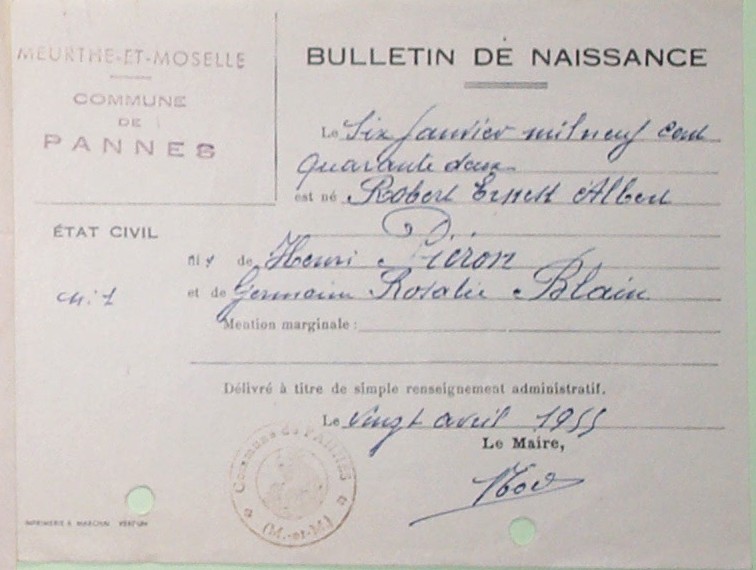 MEURTHE-ET-MOSELLE
COMMUNE
DE
PANNES
BULLETIN DE NAISSANCE
Le Six Janvier mil neuf cent
quarante deux
est né Robert Ernest Albert
ÉTAT CIVIL
de Henri Piéron
et de Germaine Rosalie Blain
Mention marginale :
Délivré à titre de simple renseignement administratif.
Le vingt avril 1955
Le Maire,
Commune de PANNES
(M.-et-M.)
IMPRIMERIE MARCHAL VERDUN